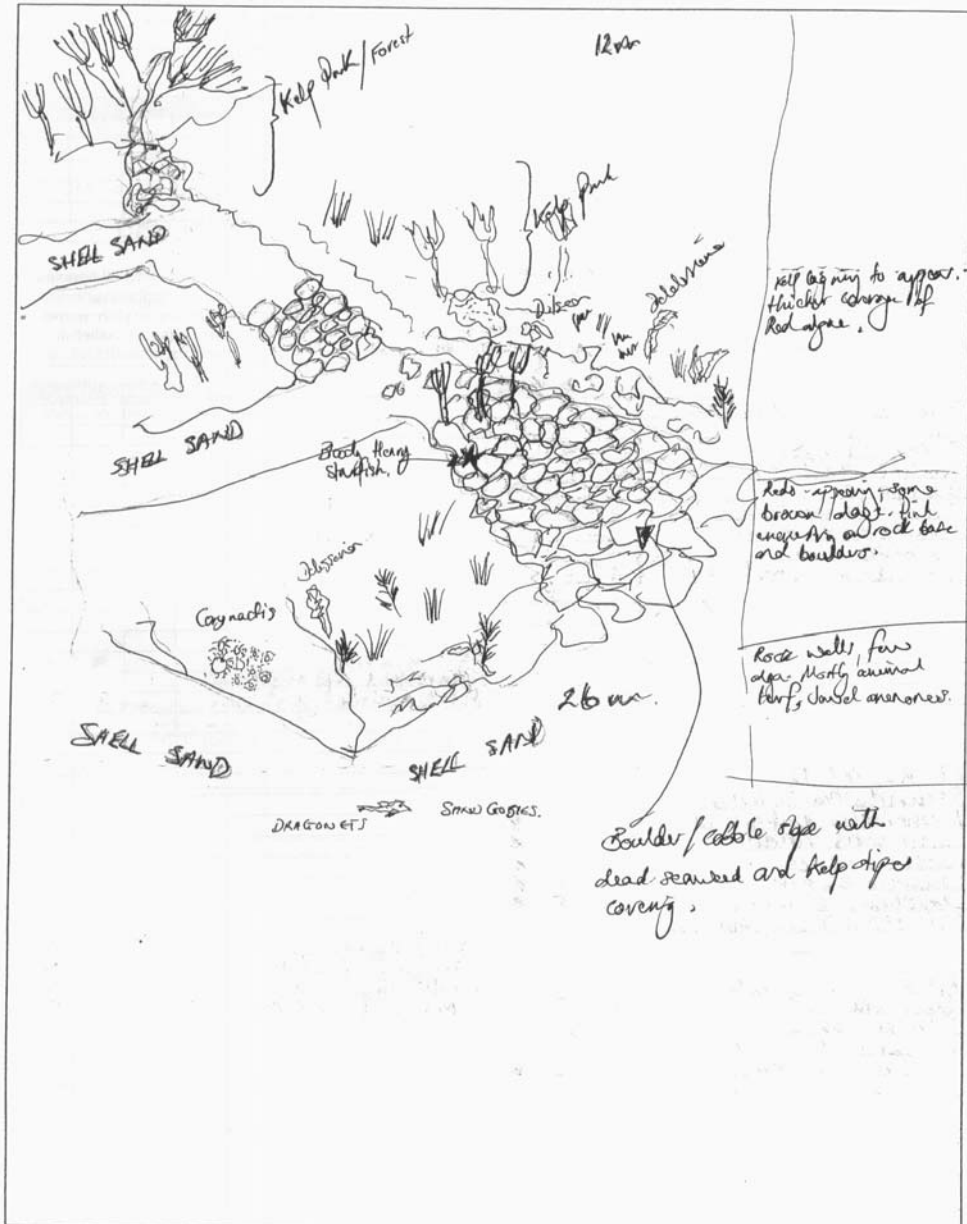 Kelp Park/Forest
12m
Kelp Park
SHELL SAND
kelp begining to appear.
thicker coverage of
Red algae.
SHELL SAND
Bloody Henry
Starfish.
Reds appearing, some
brown algae. Pink
encrusting on rock base
and boulders.
Corynactis
Rock walls, few
algae. Mostly animal
turf, Jewel anemones.
26m.
SHELL SAND
SHELL SAND
DRAGONETS
SAND GOBIES.
Boulder/cobble slope with
dead seaweed and kelp stipes
covering.